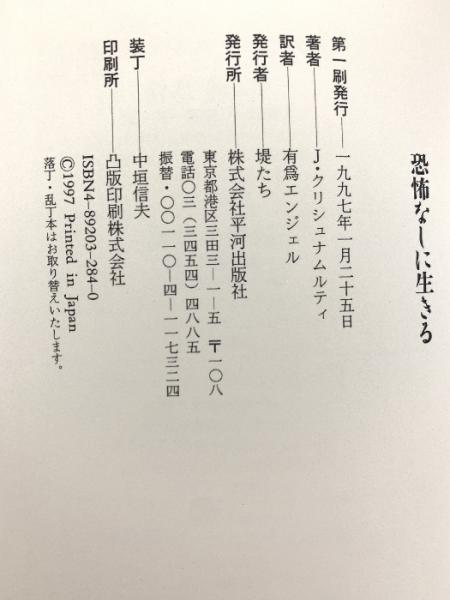 恐怖なしに生きる
第一刷発行――一九九七年一月二十五日
著者――J・クリシュナムルティ
訳者――有爲エンジェル
発行者――堤たち
発行所――株式会社平河出版社
東京都港区三田三―一―五 〒一〇八
電話〇三(三四五四)四八八五
振替・〇〇一一〇―四―一一七三二四
装丁――中垣信夫
印刷所――凸版印刷株式会社
ISBN4-89203-284-0
©1997 Printed in Japan
落丁・乱丁本はお取り替えいたします。